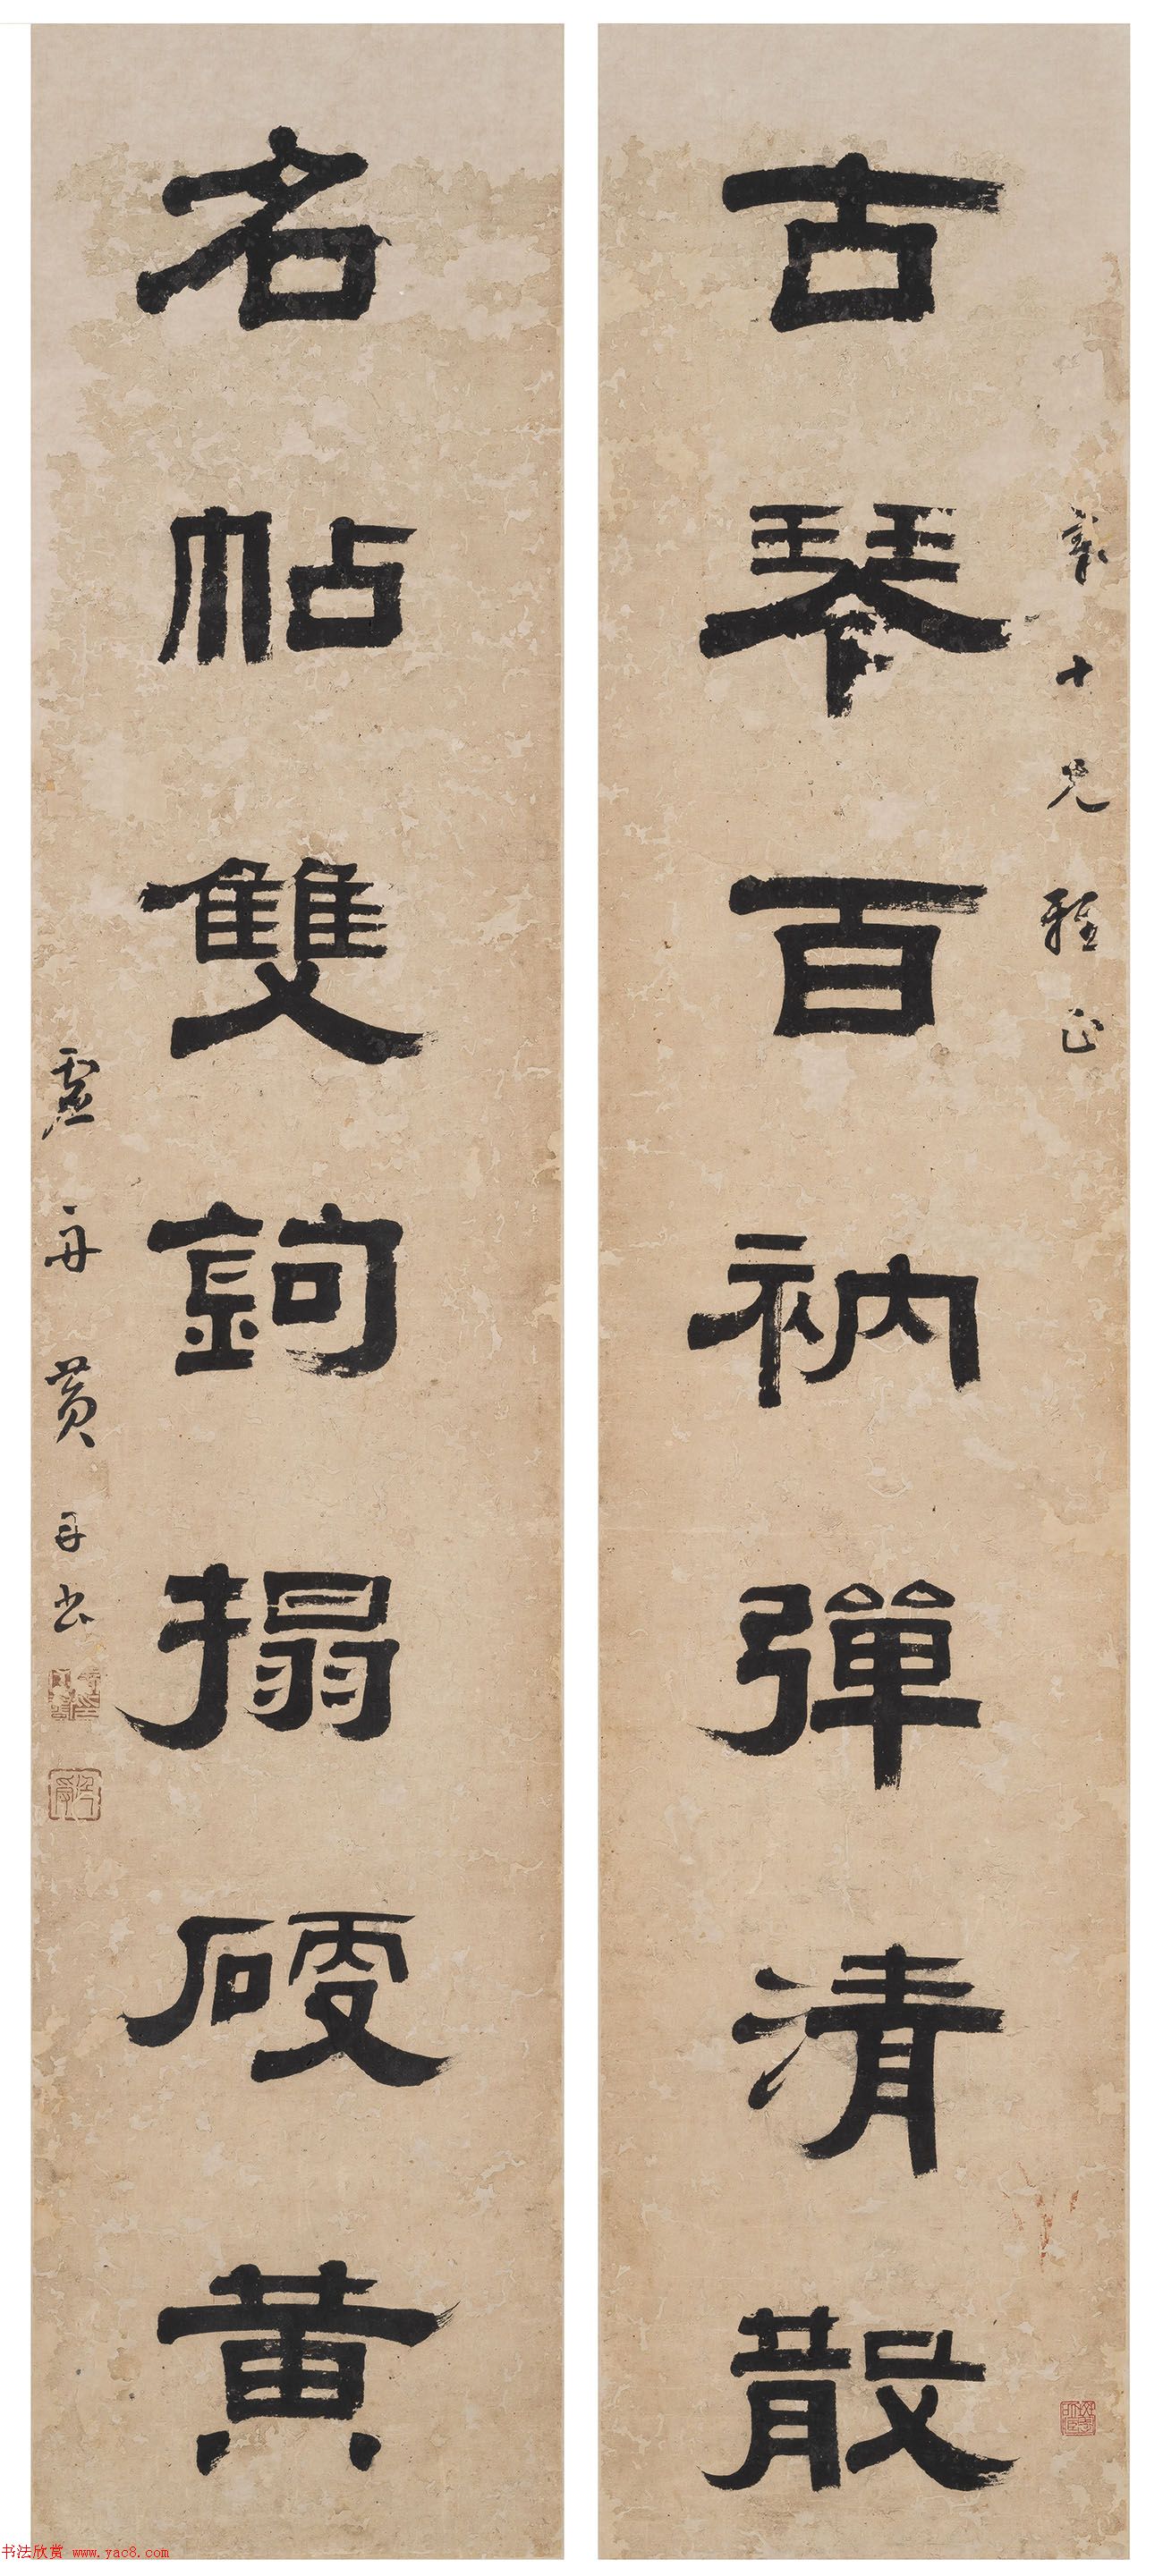 古琴百衲彈清散
名帖雙鉤搨硬黄
十兄雅正
虛舟黄
书法欣赏 www.yac8.com